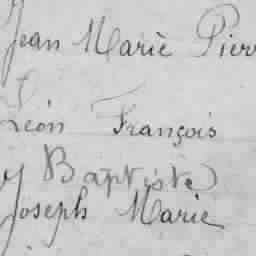 Jean Marie Pierr
Léon François
y Baptiste
Joseph Marie